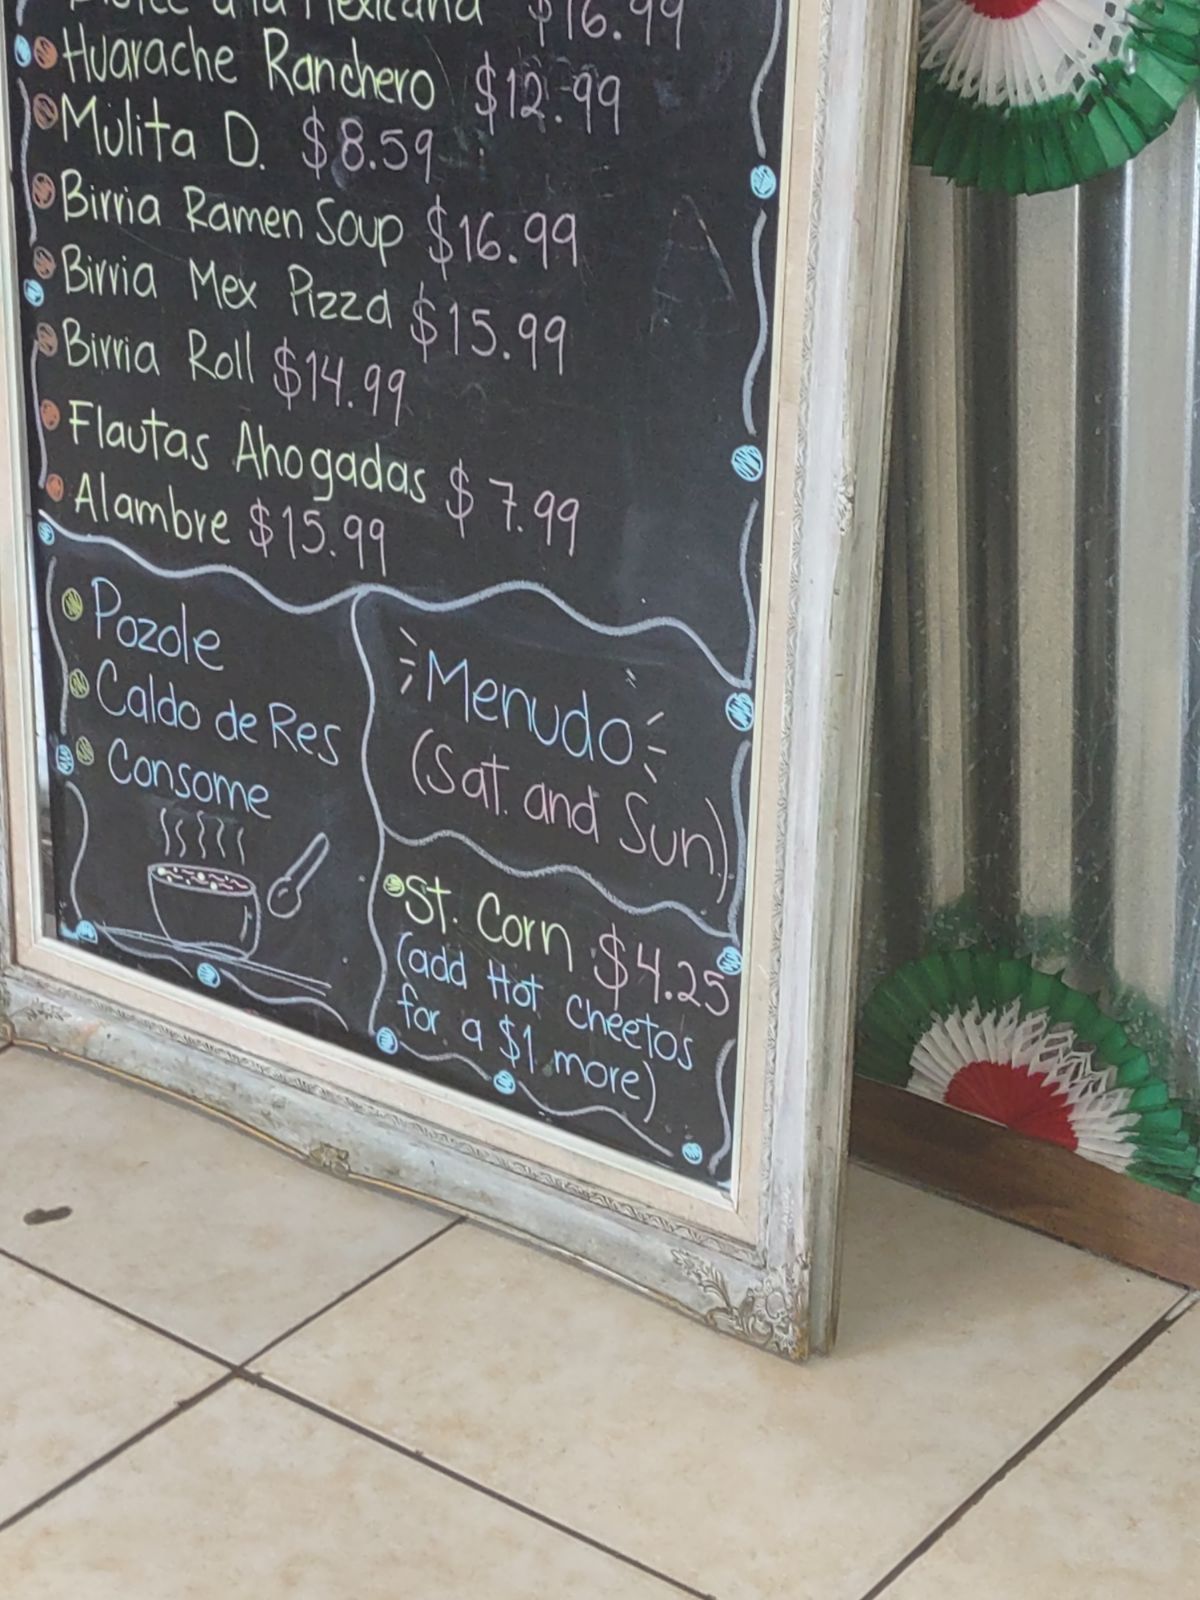 a la Mexicana $16.99
Huarache Ranchero $12.99
Mulita D. $8.59
Birria Ramen Soup $16.99
Birria Mex Pizza $15.99
Birria Roll $14.99
Flautas Ahogadas $7.99
Alambre $15.99
Pozole
Caldo de Res
Consome
Menudo
(Sat. and Sun)
St. Corn $4.25
(add Hot Cheetos
for a $1 more)